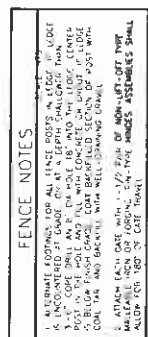 FENCE NOTES
1. ALTERNATE FOOTINGS FOR ALL FENCE POSTS IN LEDGE IF LEDGE
IS ENCOUNTERED AT GRADE OR AT A DEPTH SHALLOWER THAN
3'-6" CORE DRILL AN 8" DIA HOLE 18" INTO THE LEDGE CENTER
POST IN THE HOLE AND FILL WITH CONCRETE OR GROUT IF LEDGE
IS BELOW FINISH GRADE, COAT BACKFILLED SECTION OF POST WITH
COAL TAR AND BACKFILL WITH WELL-DRAINING GRAVEL
2. ATTACH EACH GATE WITH 1-1/2 PAIR OF NON-LIFT-OFF TYPE
MALLEABLE IRON OR FORGING, PIN-TYPE HINGES ASSEMBLIES SHALL
ALLOW FOR 180° OF GATE TRAVEL